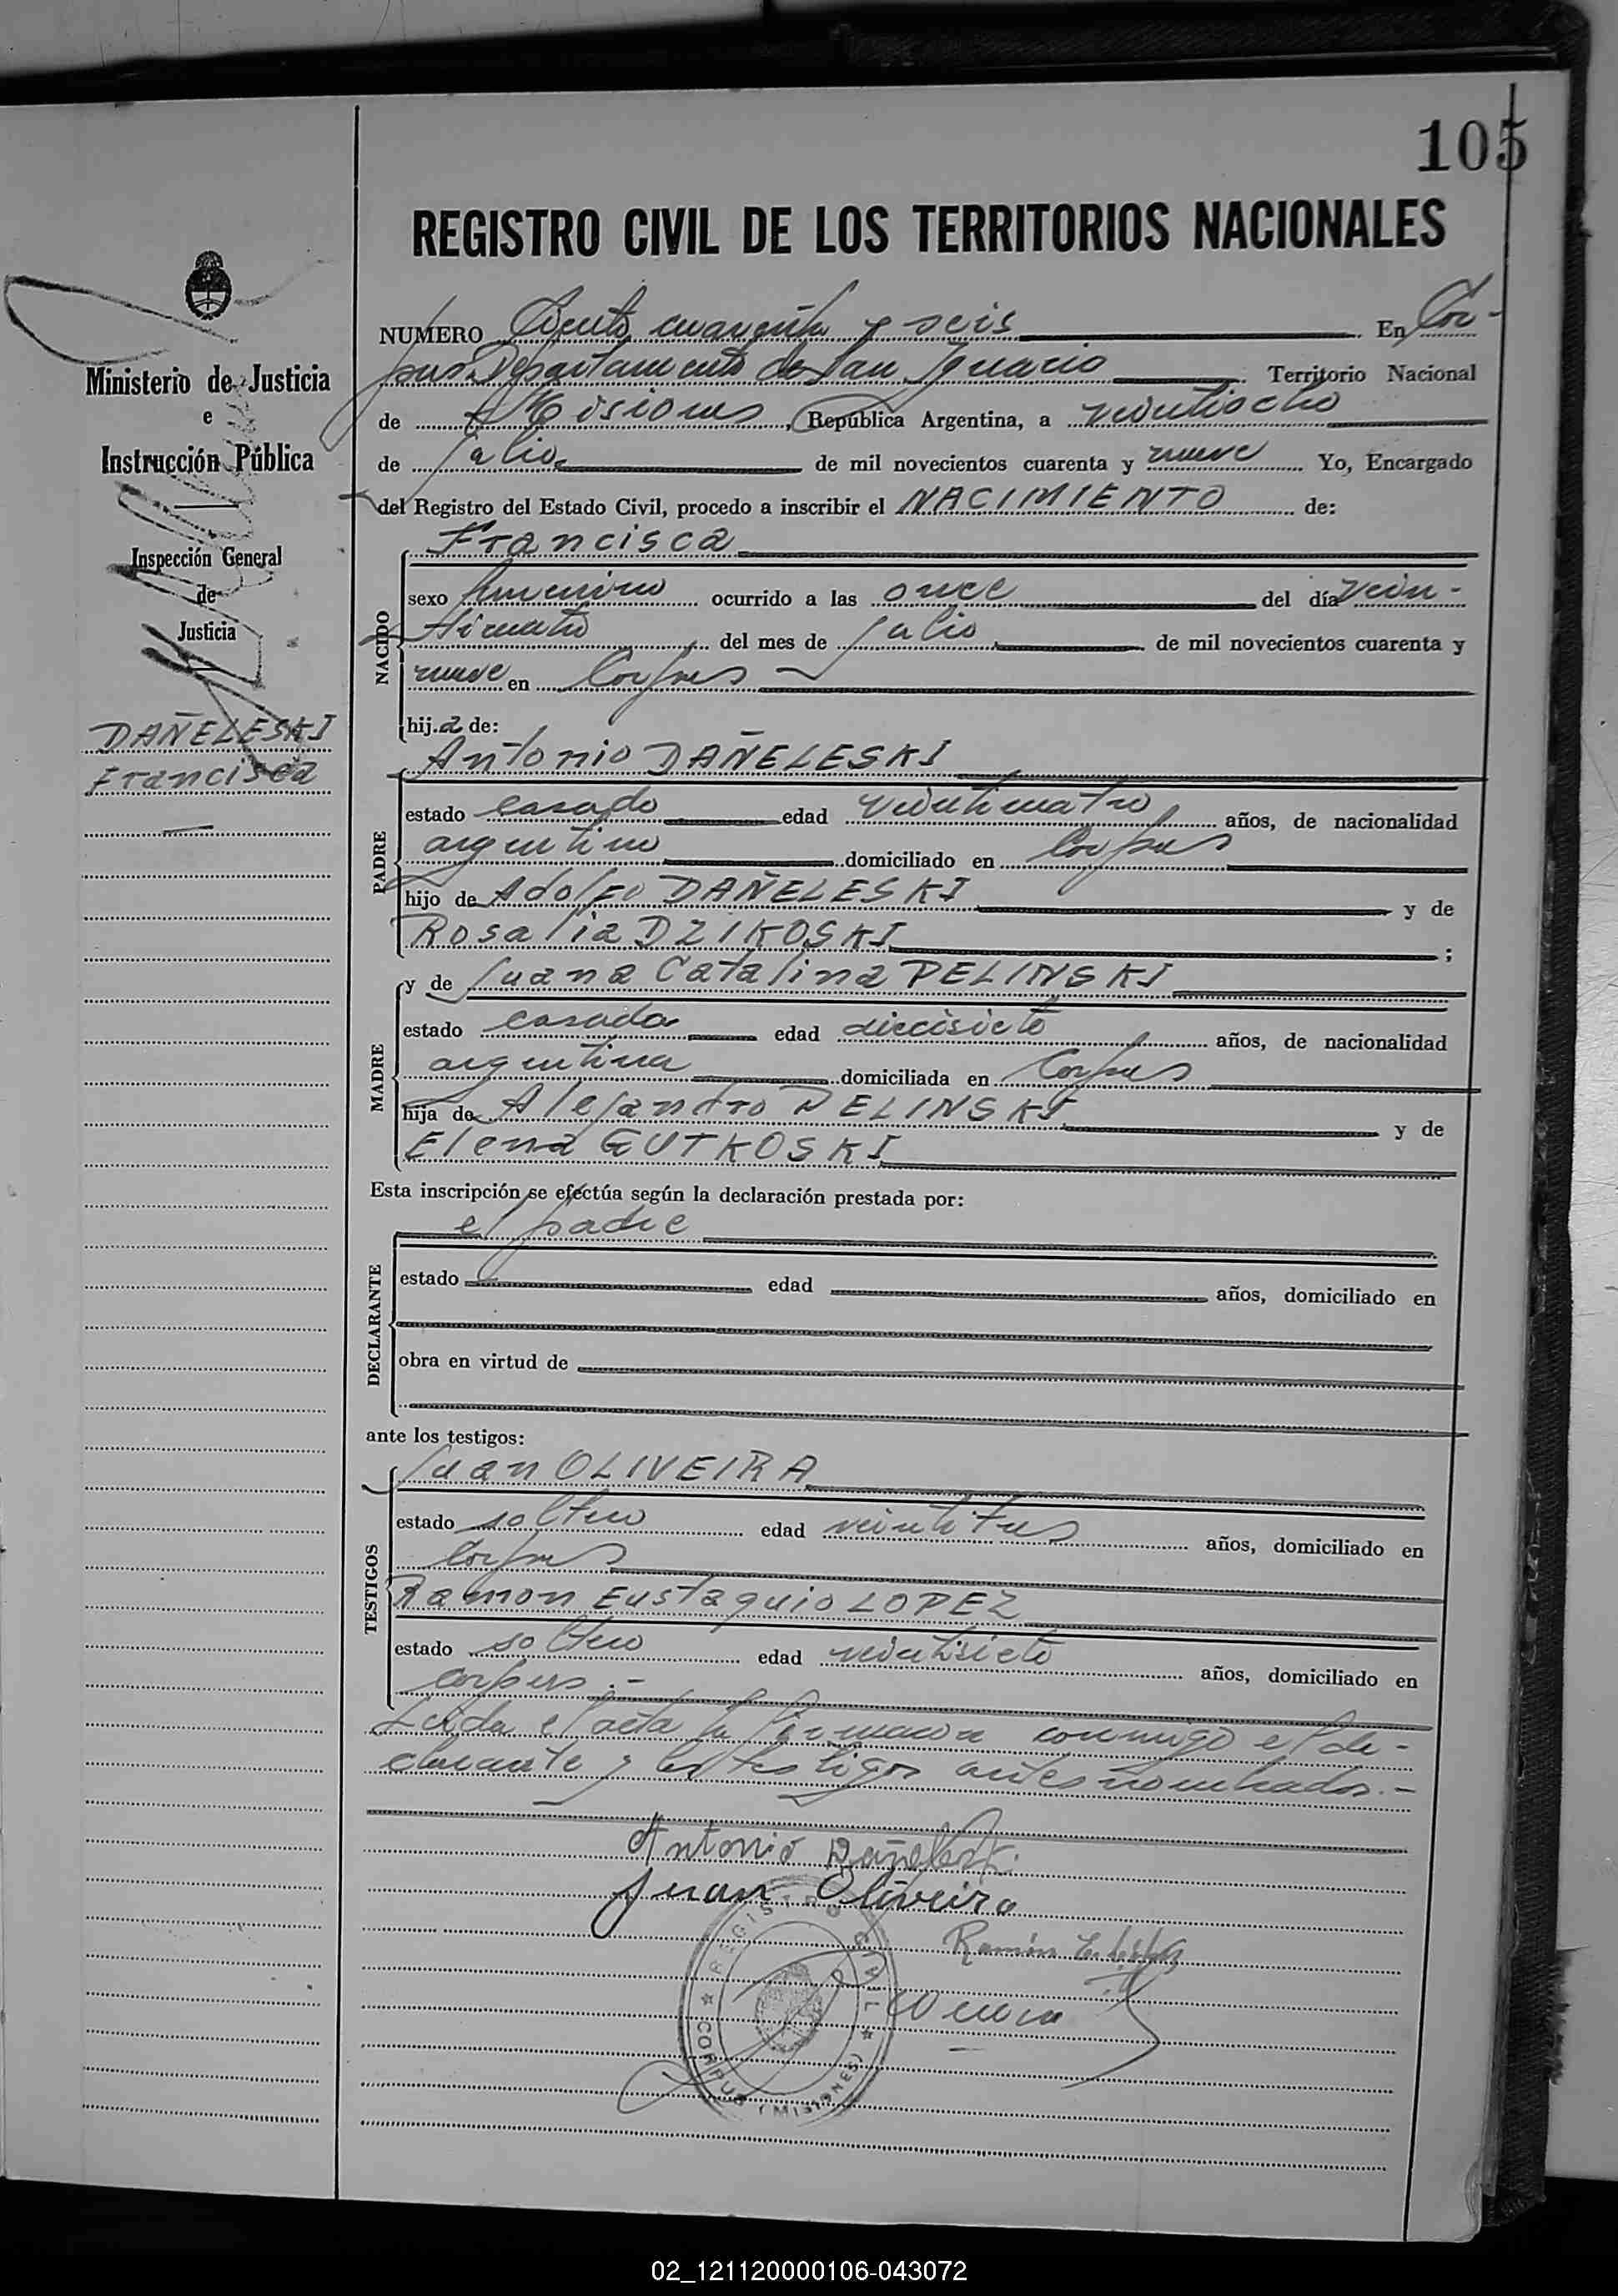 105
REGISTRO CIVIL DE LOS TERRITORIOS NACIONALES
Ministerio de Justicia
e
Instrucción Pública
Inspección General
de
Justicia
DAÑELESKI
Francisca
NUMERO Ciento cuarenta y seis En Cor-
pus Departamento de San Ignacio Territorio Nacional
de Misiones, República Argentina, a veintiocho
de Julio de mil novecientos cuarenta y nueve Yo, Encargado
del Registro del Estado Civil, procedo a inscribir el NACIMIENTO de:
NACIDO
Francisca
sexo femenino ocurrido a las once del día vein-
ticuatro del mes de Julio de mil novecientos cuarenta y
nueve en Corpus
hij.a de:
PADRE
Antonio DAÑELESKI
estado casado edad veinticuatro años, de nacionalidad
argentino domiciliado en Corpus
hijo de Adolfo DAÑELESKI y de
Rosalia DZIKOSKI ;
MADRE
y de Juana Catalina PELINSKI
estado casada edad diecisiete años, de nacionalidad
argentina domiciliada en Corpus
hija de Alejandro PELINSKI y de
Elena GUTKOSKI
Esta inscripción se efectúa según la declaración prestada por:
DECLARANTE
el padre
estado edad años, domiciliado en
obra en virtud de
ante los testigos:
TESTIGOS
Juan OLIVEIRA
estado soltero edad veintitres años, domiciliado en
Corpus
Ramon Eustaquio LOPEZ
estado soltero edad veintisiete años, domiciliado en
corpus.-
Leida el acta la firmaron conmigo el de-
clarante y los testigos antes nombrados.-
Antonio Dañeleski
Juan Oliveira
Ramón E. López
REGISTRO CIVIL
CORPUS (MISIONES)
02_121120000106-043072